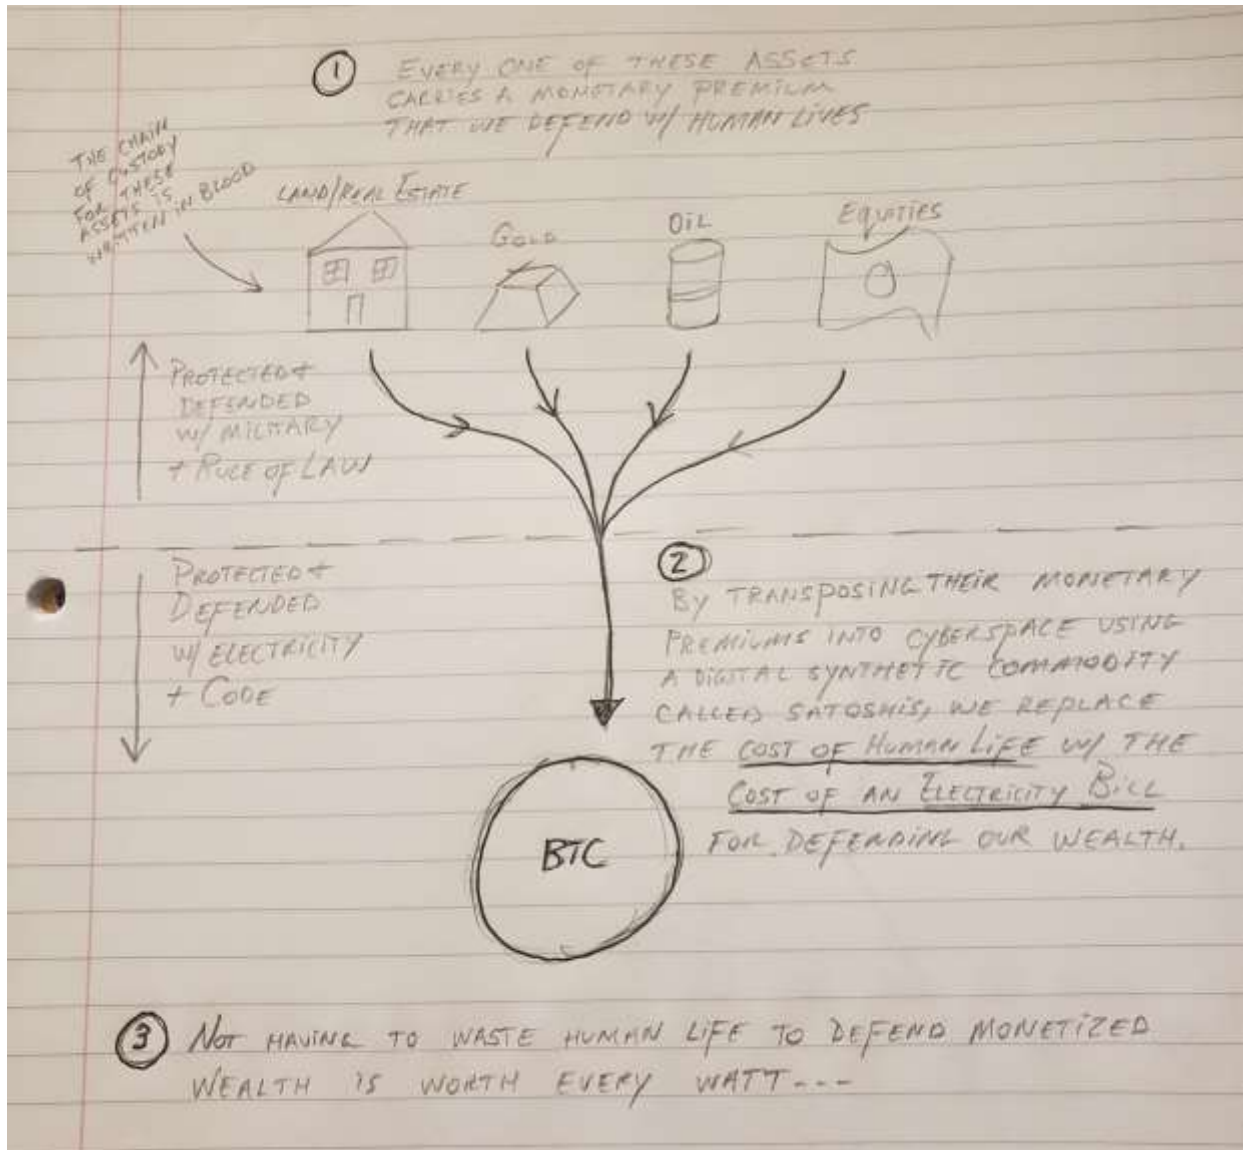 1 EVERY ONE OF THESE ASSETS
CARRIES A MONETARY PREMIUM
THAT WE DEFEND W/ HUMAN LIVES
THE CHAIN
OF CUSTODY
FOR THESE
ASSETS IS
WRITTEN IN BLOOD
LAND/REAL ESTATE
GOLD
OIL
EQUITIES
PROTECTED +
DEFENDED
W/ MILITARY
+ RULE OF LAW
PROTECTED +
DEFENDED
W/ ELECTRICITY
+ CODE
2
BY TRANSPOSING THEIR MONETARY
PREMIUMS INTO CYBERSPACE USING
A DIGITAL SYNTHETIC COMMODITY
CALLED SATOSHIS, WE REPLACE
THE COST OF HUMAN LIFE W/ THE
COST OF AN ELECTRICITY BILL
FOR DEFENDING OUR WEALTH.
BTC
3 NOT HAVING TO WASTE HUMAN LIFE TO DEFEND MONETIZED
WEALTH IS WORTH EVERY WATT---